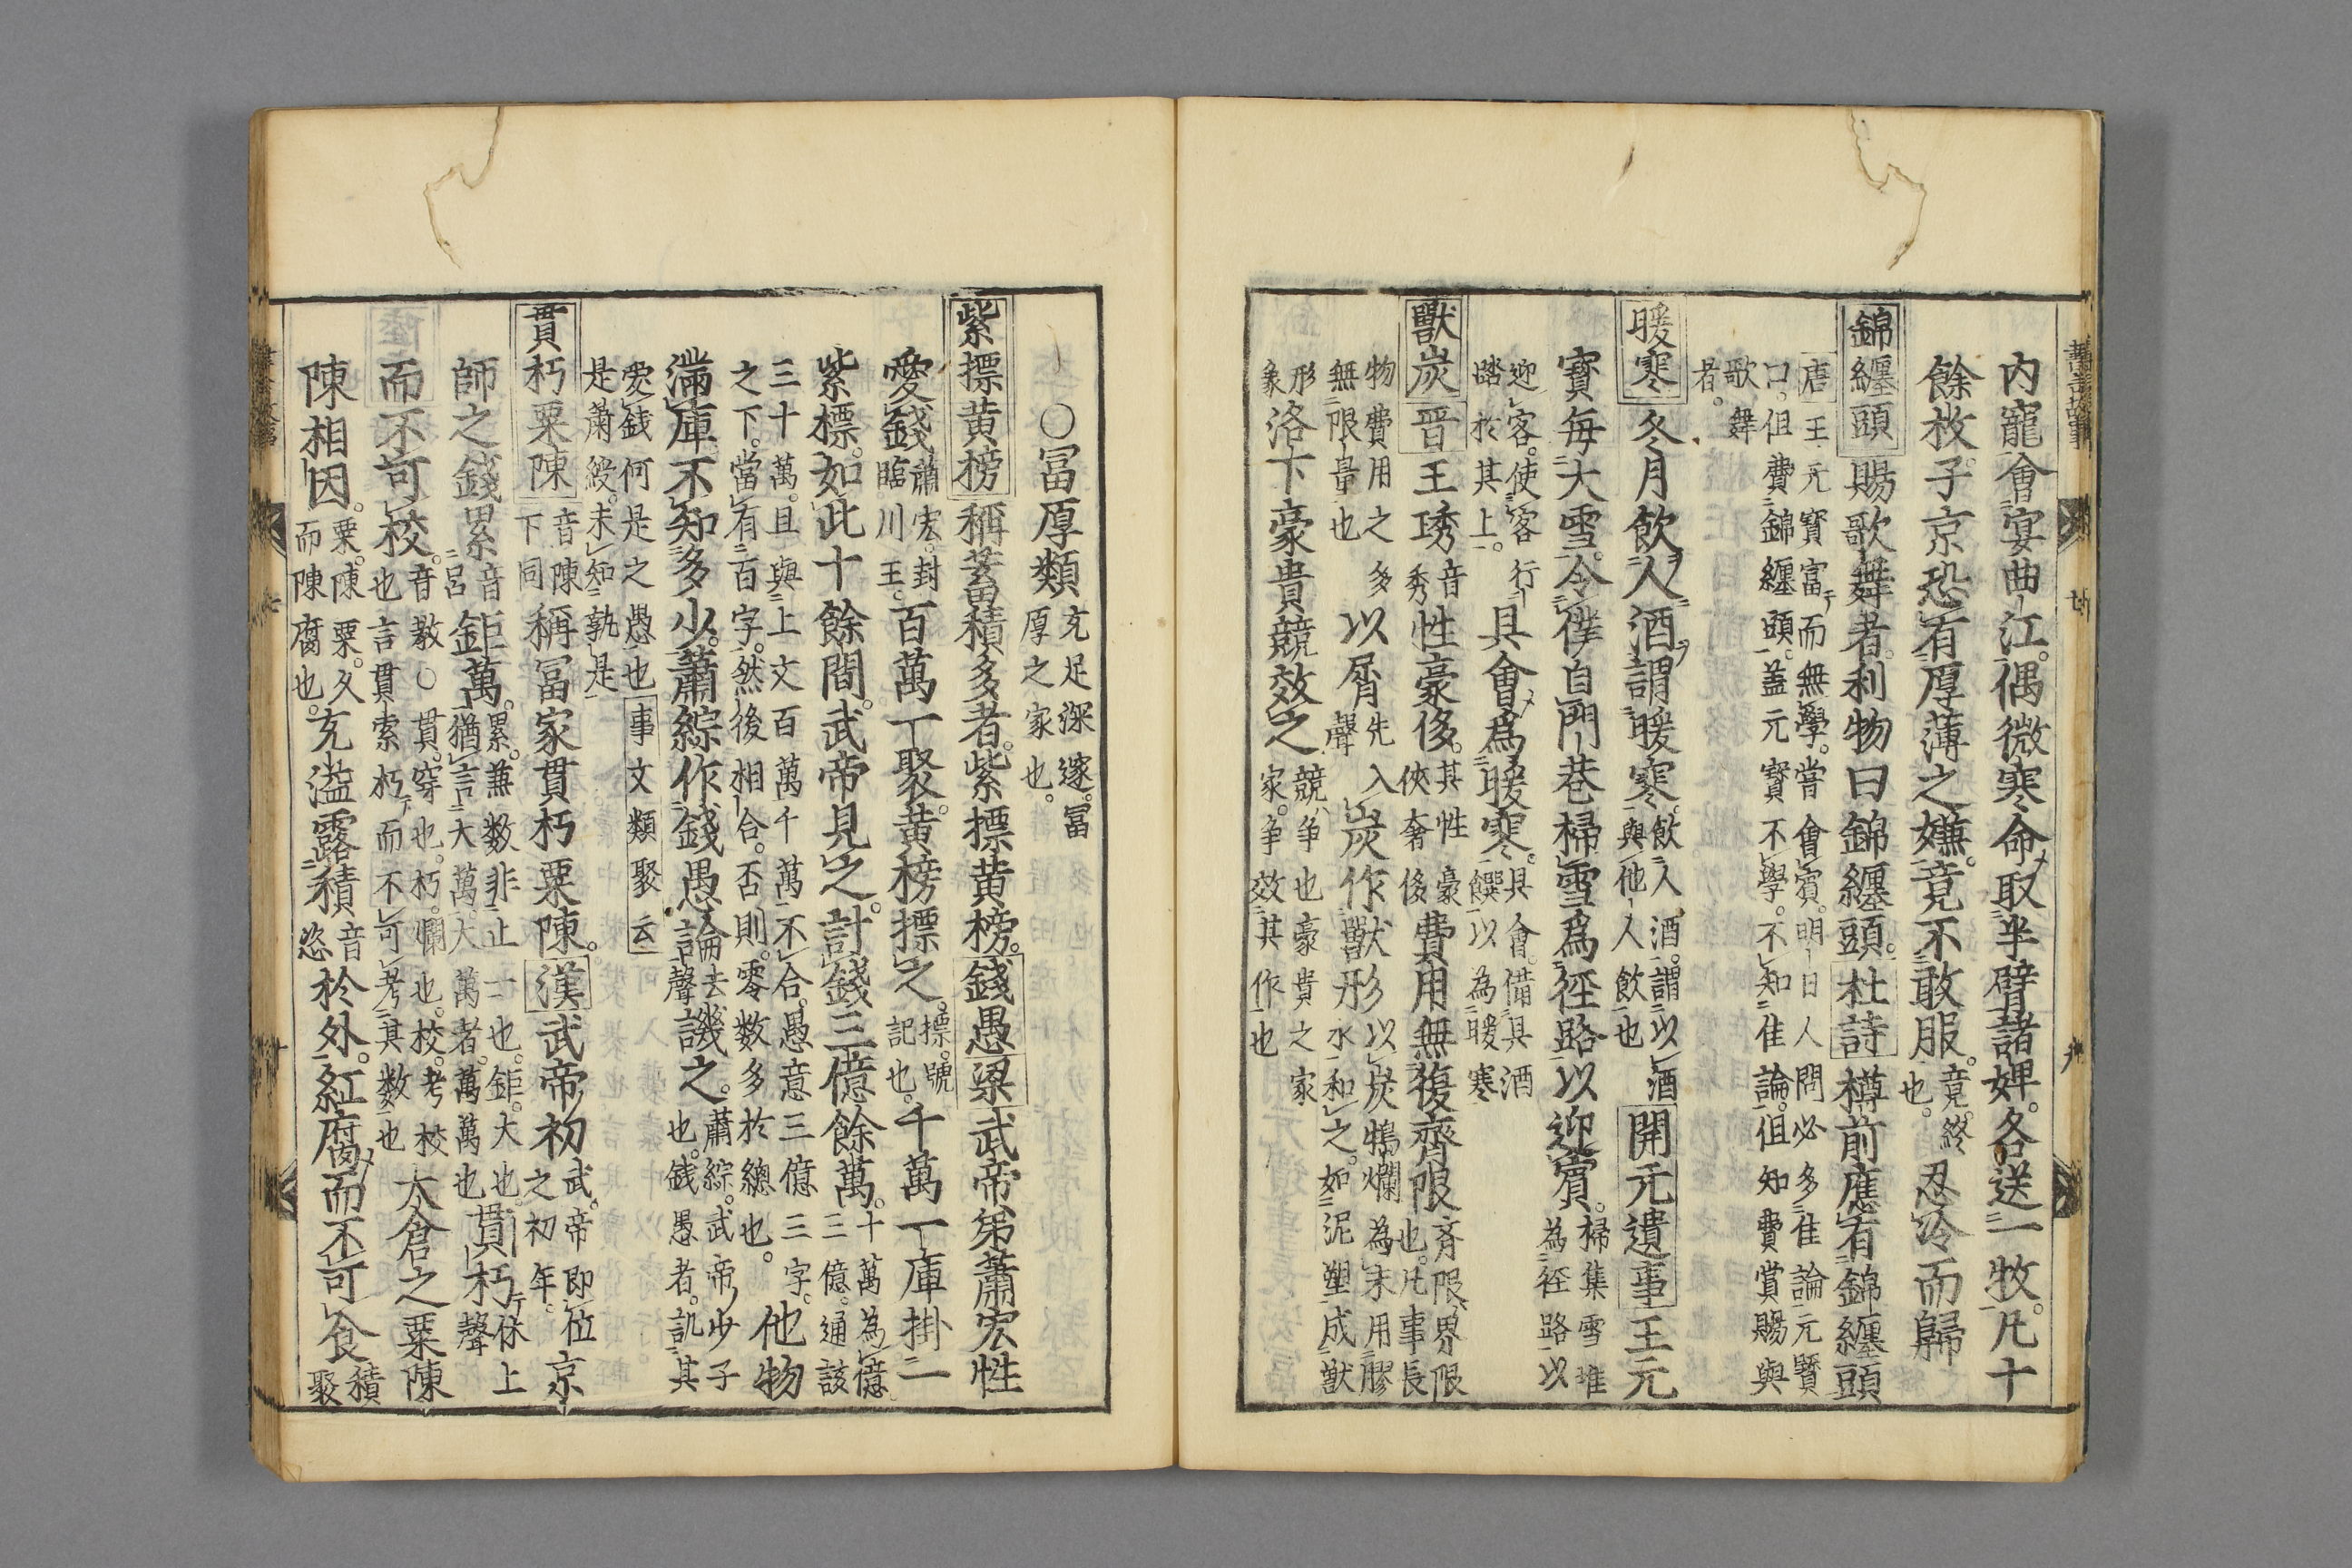 内寵會宴曲江。偶微寒命取半臂諸婢。各送一枚。凡十
餘枚子京恐有厚薄之嫌。竟不敢服。竟。終也。忍冷而歸
錦纏頭 賜歌舞者。利物曰錦纏頭。杜詩樽前應有錦纏頭
唐王元寳富而無學。嘗會賓。明日人問必多佳論元寳
口。但費錦纏頭。蓋元寳不學。不知佳論。但知費賞賜與
歌舞
者。
暖寒 冬月飲人酒謂暖寒。飲人酒。謂以酒與他人飲也 開元遺事王元
寳毎大雪。令僕自門巷掃雪爲徑路以迎賓。掃集雪堆為徑路以
迎客。使客行踏於其上。具會爲暖寒。具會。備具酒饌以為暖寒
獸炭 晉王琇音秀性豪侈。其性豪俠奢侈費用無復齊限斉限。界限也。凡事長
物費用之多無限量也以屑先聲入炭作獸形以炭鴂爛為末用膠
水和之。如泥塑成獣
形象洛下豪貴競效之競。争也豪貴之家。争效其作也
○冨厚類充足深邃。冨厚之家也。
紫摽黄榜 稱蓄積多者。紫摽黄榜。錢愚梁武帝弟蕭宏性
愛錢蕭宏。封臨川王。百萬一聚。黄榜摽之。摽。號記也。千萬一庫掛一
紫標。如此十餘間。武帝見之。計錢三億餘萬。十萬為億三億。通該
三十萬。且與上文百萬千萬不合。愚意三億三字。
之下。當有百字。然後相合。否則。零数多於總也。他物
滿庫不知多少。蕭綜作錢愚論去聲譏之。蕭綜。武帝少子也。銭愚者。訕其
愛銭何是之愚也事文類聚云
是蕭綬。未知孰是
貫朽粟陳音陳下同 稱冨家貫朽粟陳。漢武帝初武。帝即位之初年。京
師之錢累音呂鉅萬。累。兼数非止一也。鉅。大也。猶言大萬。大萬者。萬萬也貫朽休上聲
而不可校。音教○貫。穿也。朽。爛也。校。考校也言貫索朽而不可考其数也太倉之粟陳
陳相因。粟。陳。粟。久而陳腐也。充溢露積音恣於外。紅腐而不可食積聚